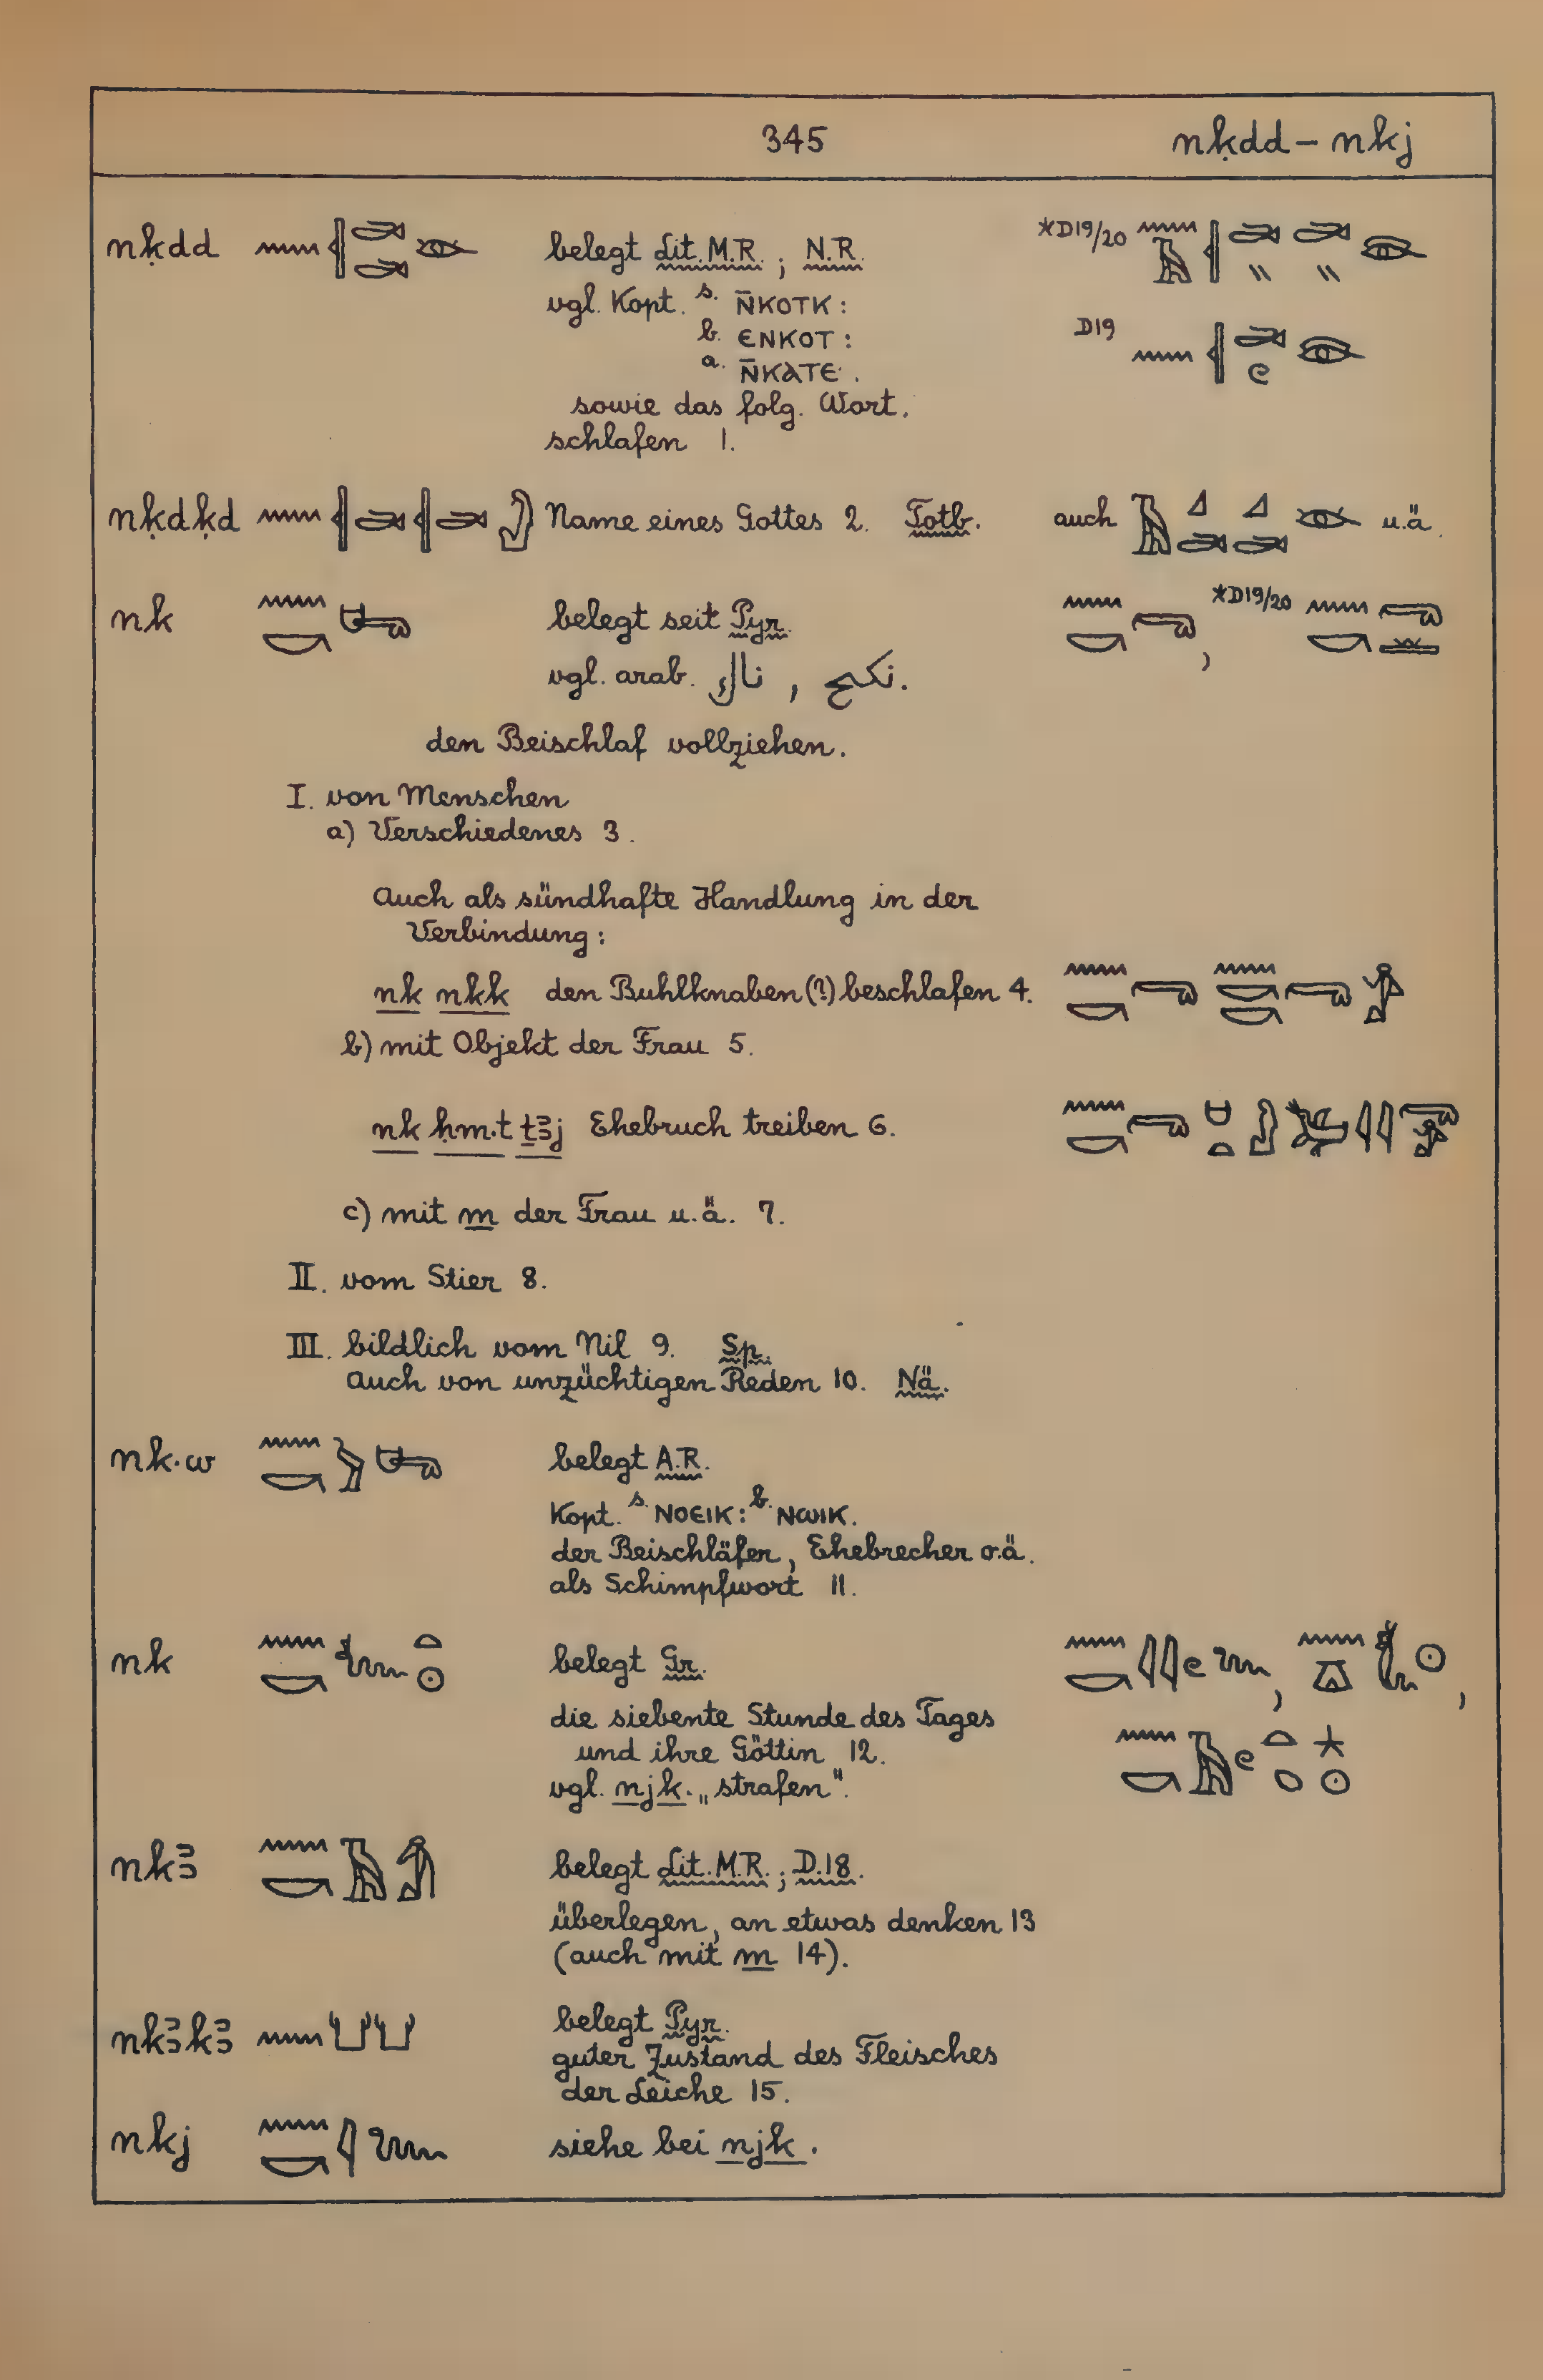 345 nḳdd – nkj
nḳdd belegt Lit. M.R.; N.R. *D19/20
vgl. Kopt. s. N̄KOTK: D19
b. ЄNKOT:
a. N̄KATЄ.
sowie das folg. Wort.
schlafen 1.
nḳdḳd Name eines Gottes 2. Totb. auch u.ä.
nk belegt seit Pyr. *D19/20
vgl. arab. ناك , نكح.
den Beischlaf vollziehen.
I. von Menschen
a) Verschiedenes 3.
Auch als sündhafte Handlung in der
Verbindung:
nk nkk den Buhlknaben (?) beschlafen 4.
b) mit Objekt der Frau 5.
nk ḥm.t ṯꜣj Ehebruch treiben 6.
c) mit m der Frau u.ä. 7.
II. vom Stier 8.
III. bildlich vom Nil 9. Sp.
auch von unzüchtigen Reden 10. Nä.
nk·w belegt A.R.
Kopt. s. NOЄIK: b. NѠIK.
der Beischläfer, Ehebrecher o.ä.
als Schimpfwort 11.
nk belegt Gr.
die siebente Stunde des Tages
und ihre Göttin 12.
vgl. njk. „strafen".
nkꜣ belegt Lit. M.R.; D.18.
überlegen, an etwas denken 13
(auch mit m 14).
nkꜣkꜣ belegt Pyr.
guter Zustand des Fleisches
der Leiche 15.
nkj siehe bei njk.